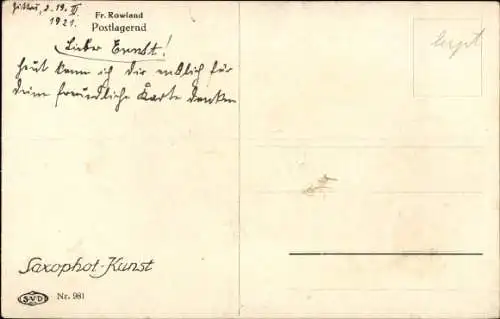 Zittau, d. 19. VI.
1921.
Fr. Rowland
Postlagernd
Lieber Ernst!
Heut kann ich Dir endlich für
deine freundliche Karte danken
Saxophot-Kunst
SVD Nr. 981